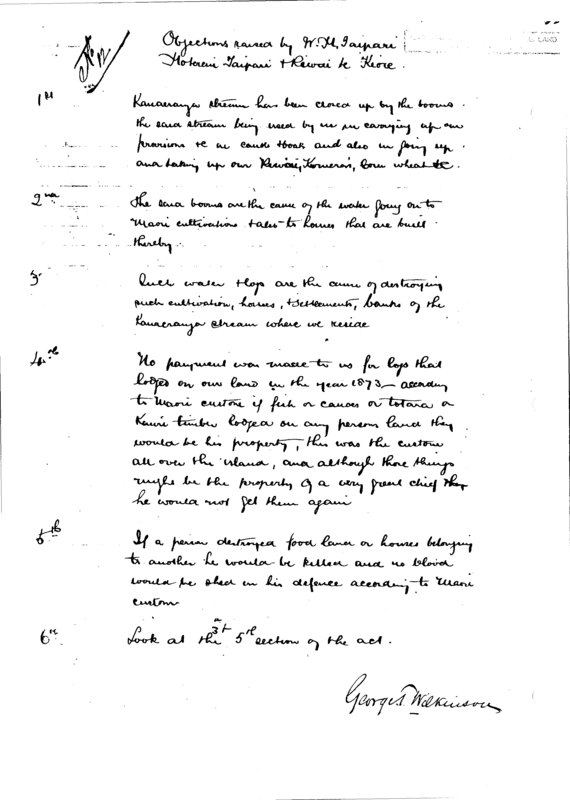 Objections raised by W. H. Taipari
Hotereni Taipari & Rewai te Kiore.
1st Kauaeranga stream has been closed up by the booms.
the said stream being used by us in carrying up our
provisions &c in and also in going up
and taking up our Kumeras, corn wheat &c.
2nd The said booms are the cause of the water going on to
Maori cultivations & also to houses that are built
thereby.
3 Such water & logs are the cause of destroying
such cultivation, houses, & settlements, banks of the
Kauaeranga stream where we reside
4th No payment was made to us for logs that
lodged on our land in the year 1873 – according
to Maori custom if fish or canoes or totara or
Kauri timber lodged on any persons land they
would be his property, this was the custom
all over the island, and although those things
might be the property of a very great chief
he would not get them again
5th If a person destroyed food land or houses belonging
to another he would be killed and no blood
would be shed in his defence according to Maori
custom
6th Look at the 3rd 5th section of the act.
George T Wilkinson